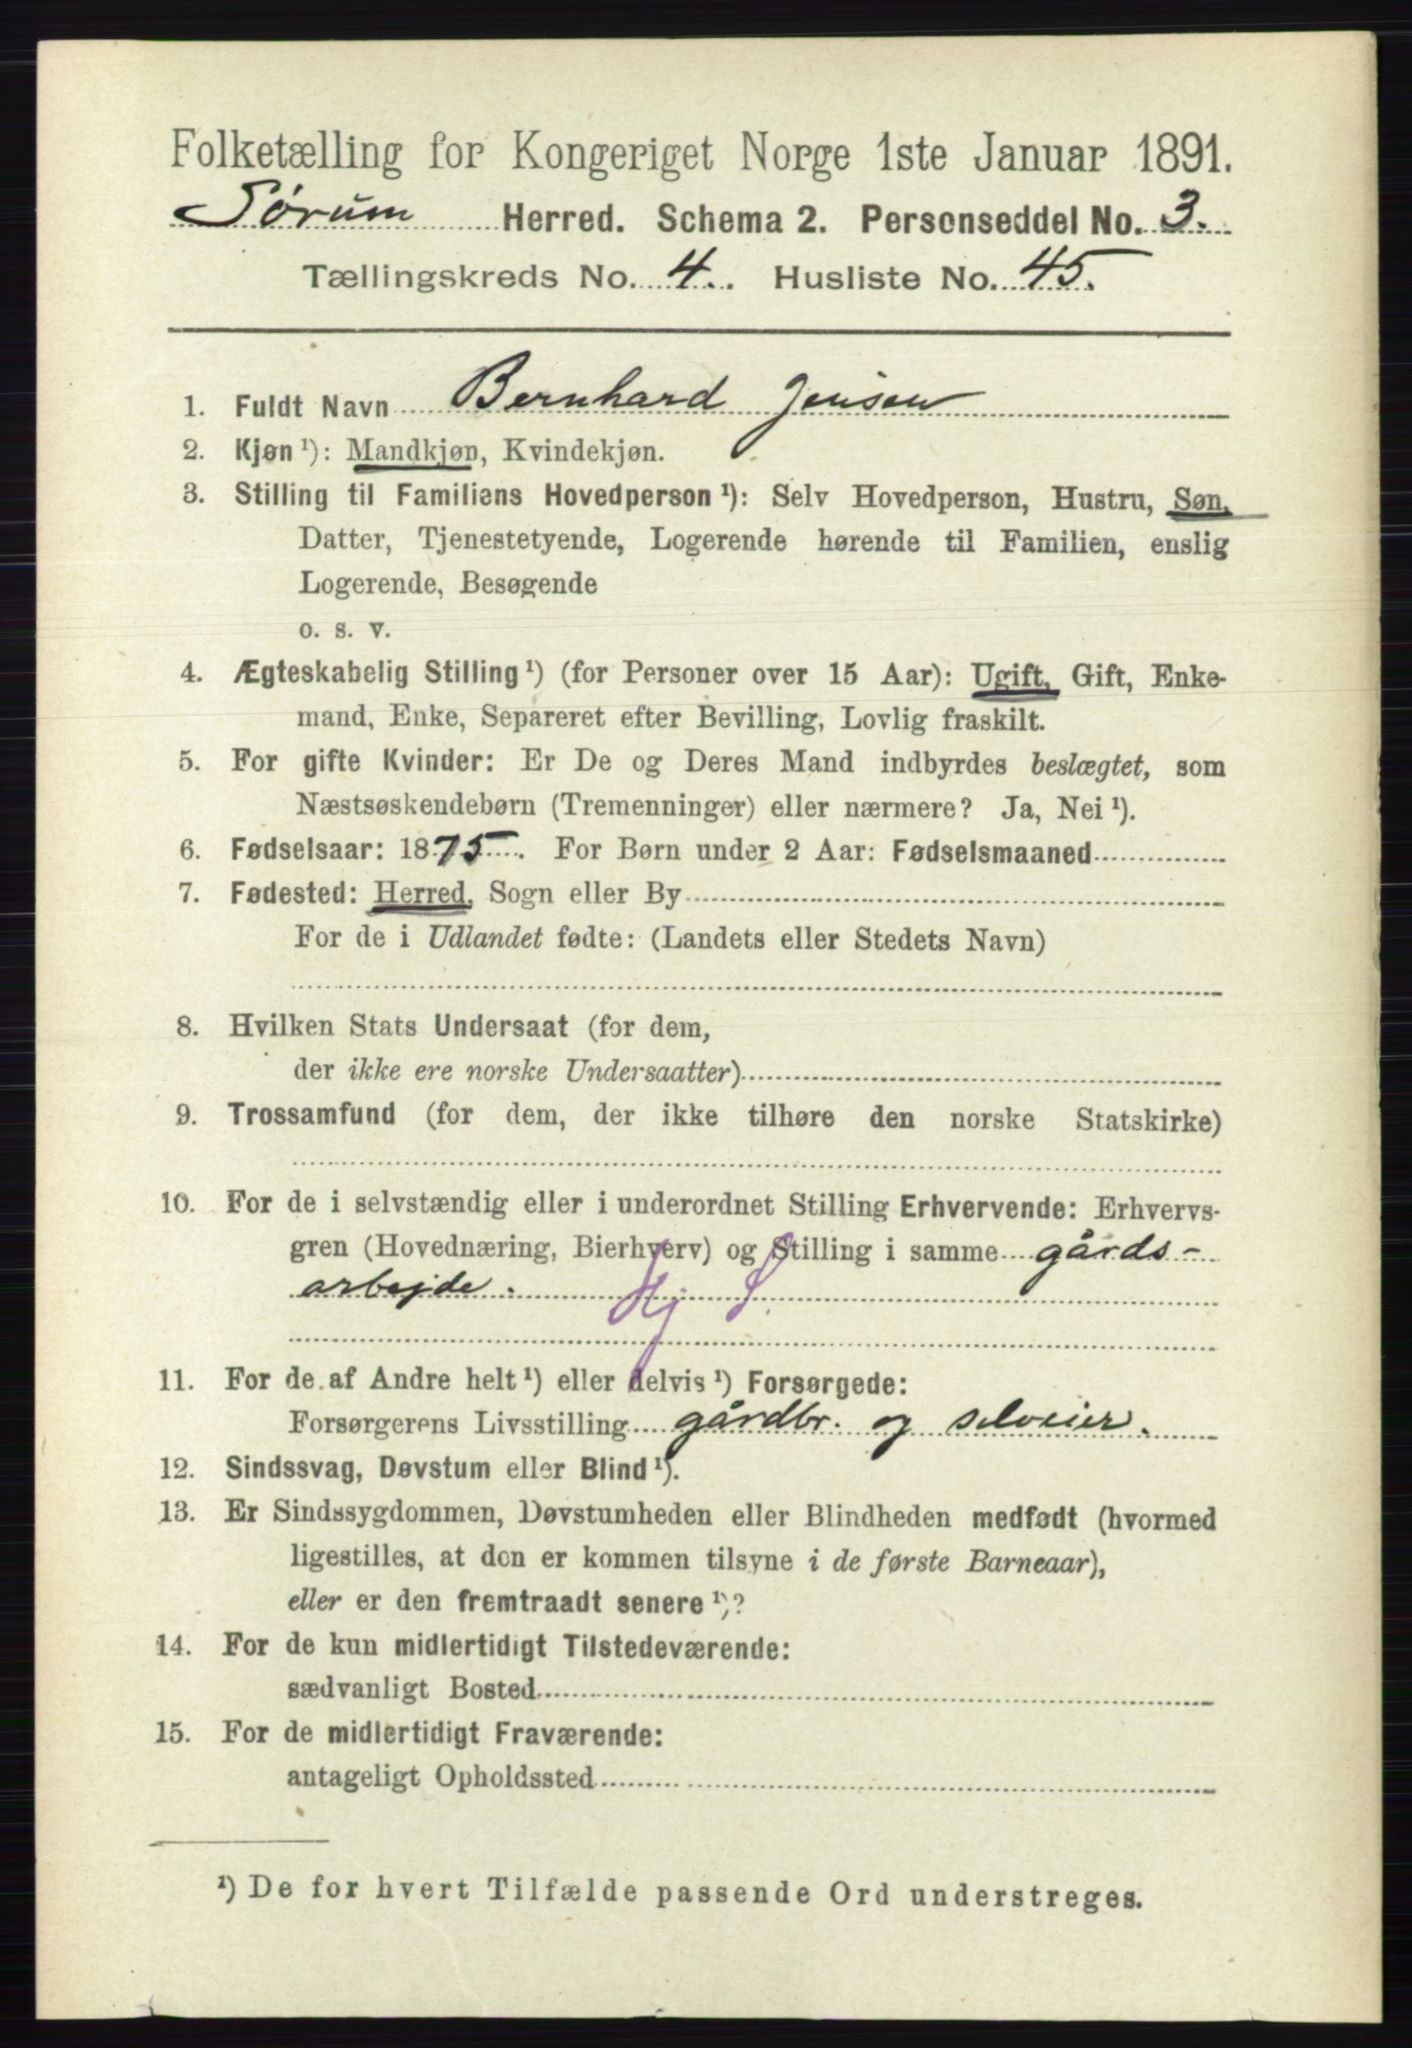 Folketælling for Kongeriget Norge 1ste Januar 1891.
Sørum Herred. Schema 2. Personseddel No. 3.
Tællingskreds No. 4. Husliste No. 45.
1. Fuldt Navn Bernhard Jensen
2. Kjøn ¹): Mandkjøn, Kvindekjøn.
3. Stilling til Familiens Hovedperson ¹): Selv Hovedperson, Hustru, Søn,
Datter, Tjenestetyende, Logerende hørende til Familien, enslig
Logerende, Besøgende
o. s. v.
4. Ægteskabelig Stilling ¹) (for Personer over 15 Aar): Ugift, Gift, Enke-
mand, Enke, Separeret efter Bevilling, Lovlig fraskilt.
5. For gifte Kvinder: Er De og Deres Mand indbyrdes beslægtet, som
Næstsøskendebørn (Tremenninger) eller nærmere? Ja, Nei ¹).
6. Fødselsaar: 1875. For Børn under 2 Aar: Fødselsmaaned
7. Fødested: Herred, Sogn eller By
For de i Udlandet fødte: (Landets eller Stedets Navn)
8. Hvilken Stats Undersaat (for dem,
der ikke ere norske Undersaatter)
9. Trossamfund (for dem, der ikke tilhøre den norske Statskirke)
10. For de i selvstændig eller i underordnet Stilling Erhvervende: Erhvervs-
gren (Hovednæring, Bierhverv) og Stilling i samme gårds-
arbejde. Hj S.
11. For de af Andre helt ¹) eller delvis ¹) Forsørgede:
Forsørgerens Livsstilling gårdbr. og selveier.
12. Sindssvag, Døvstum eller Blind ¹).
13. Er Sindssygdommen, Døvstumheden eller Blindheden medfødt (hvormed
ligestilles, at den er kommen tilsyne i de første Barneaar),
eller er den fremtraadt senere ¹)?
14. For de kun midlertidigt Tilstedeværende:
sædvanligt Bosted
15. For de midlertidigt Fraværende:
antageligt Opholdssted
¹) De for hvert Tilfælde passende Ord understreges.